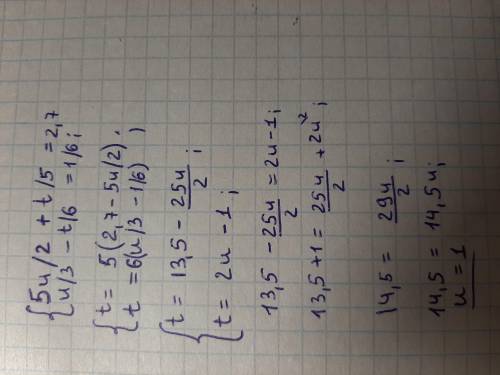 {5u/2 + t/5 = 2,7
u/3 - t/6 = 1/6;
{t = 5(2,7 - 5u/2),
t = 6(u/3 - 1/6) ;
{t = 13,5 - 25u/2 ;
t = 2u - 1;
13,5 - 25u/2 = 2u - 1;
13,5 + 1 = 25u/2 + 2u ;
14,5 = 29u/2 ;
14,5 = 14,5u;
u = 1